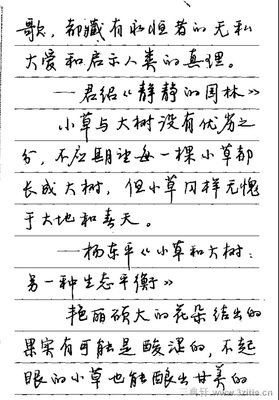 歌，都藏有永恒者的无私
大爱和启示人类的真理。
——君绍《静静的园林》
小草与大树没有优劣之
分，不应期望每一棵小草都
长成大树，但小草同样无愧
于大地和春天。
——杨东平《小草和大树：
另一种生态平衡》
艳丽硕大的花朵结出的
果实有可能是酸涩的，不起
眼的小草也能酿出甘美的
三典轩 www.3zitie.cn